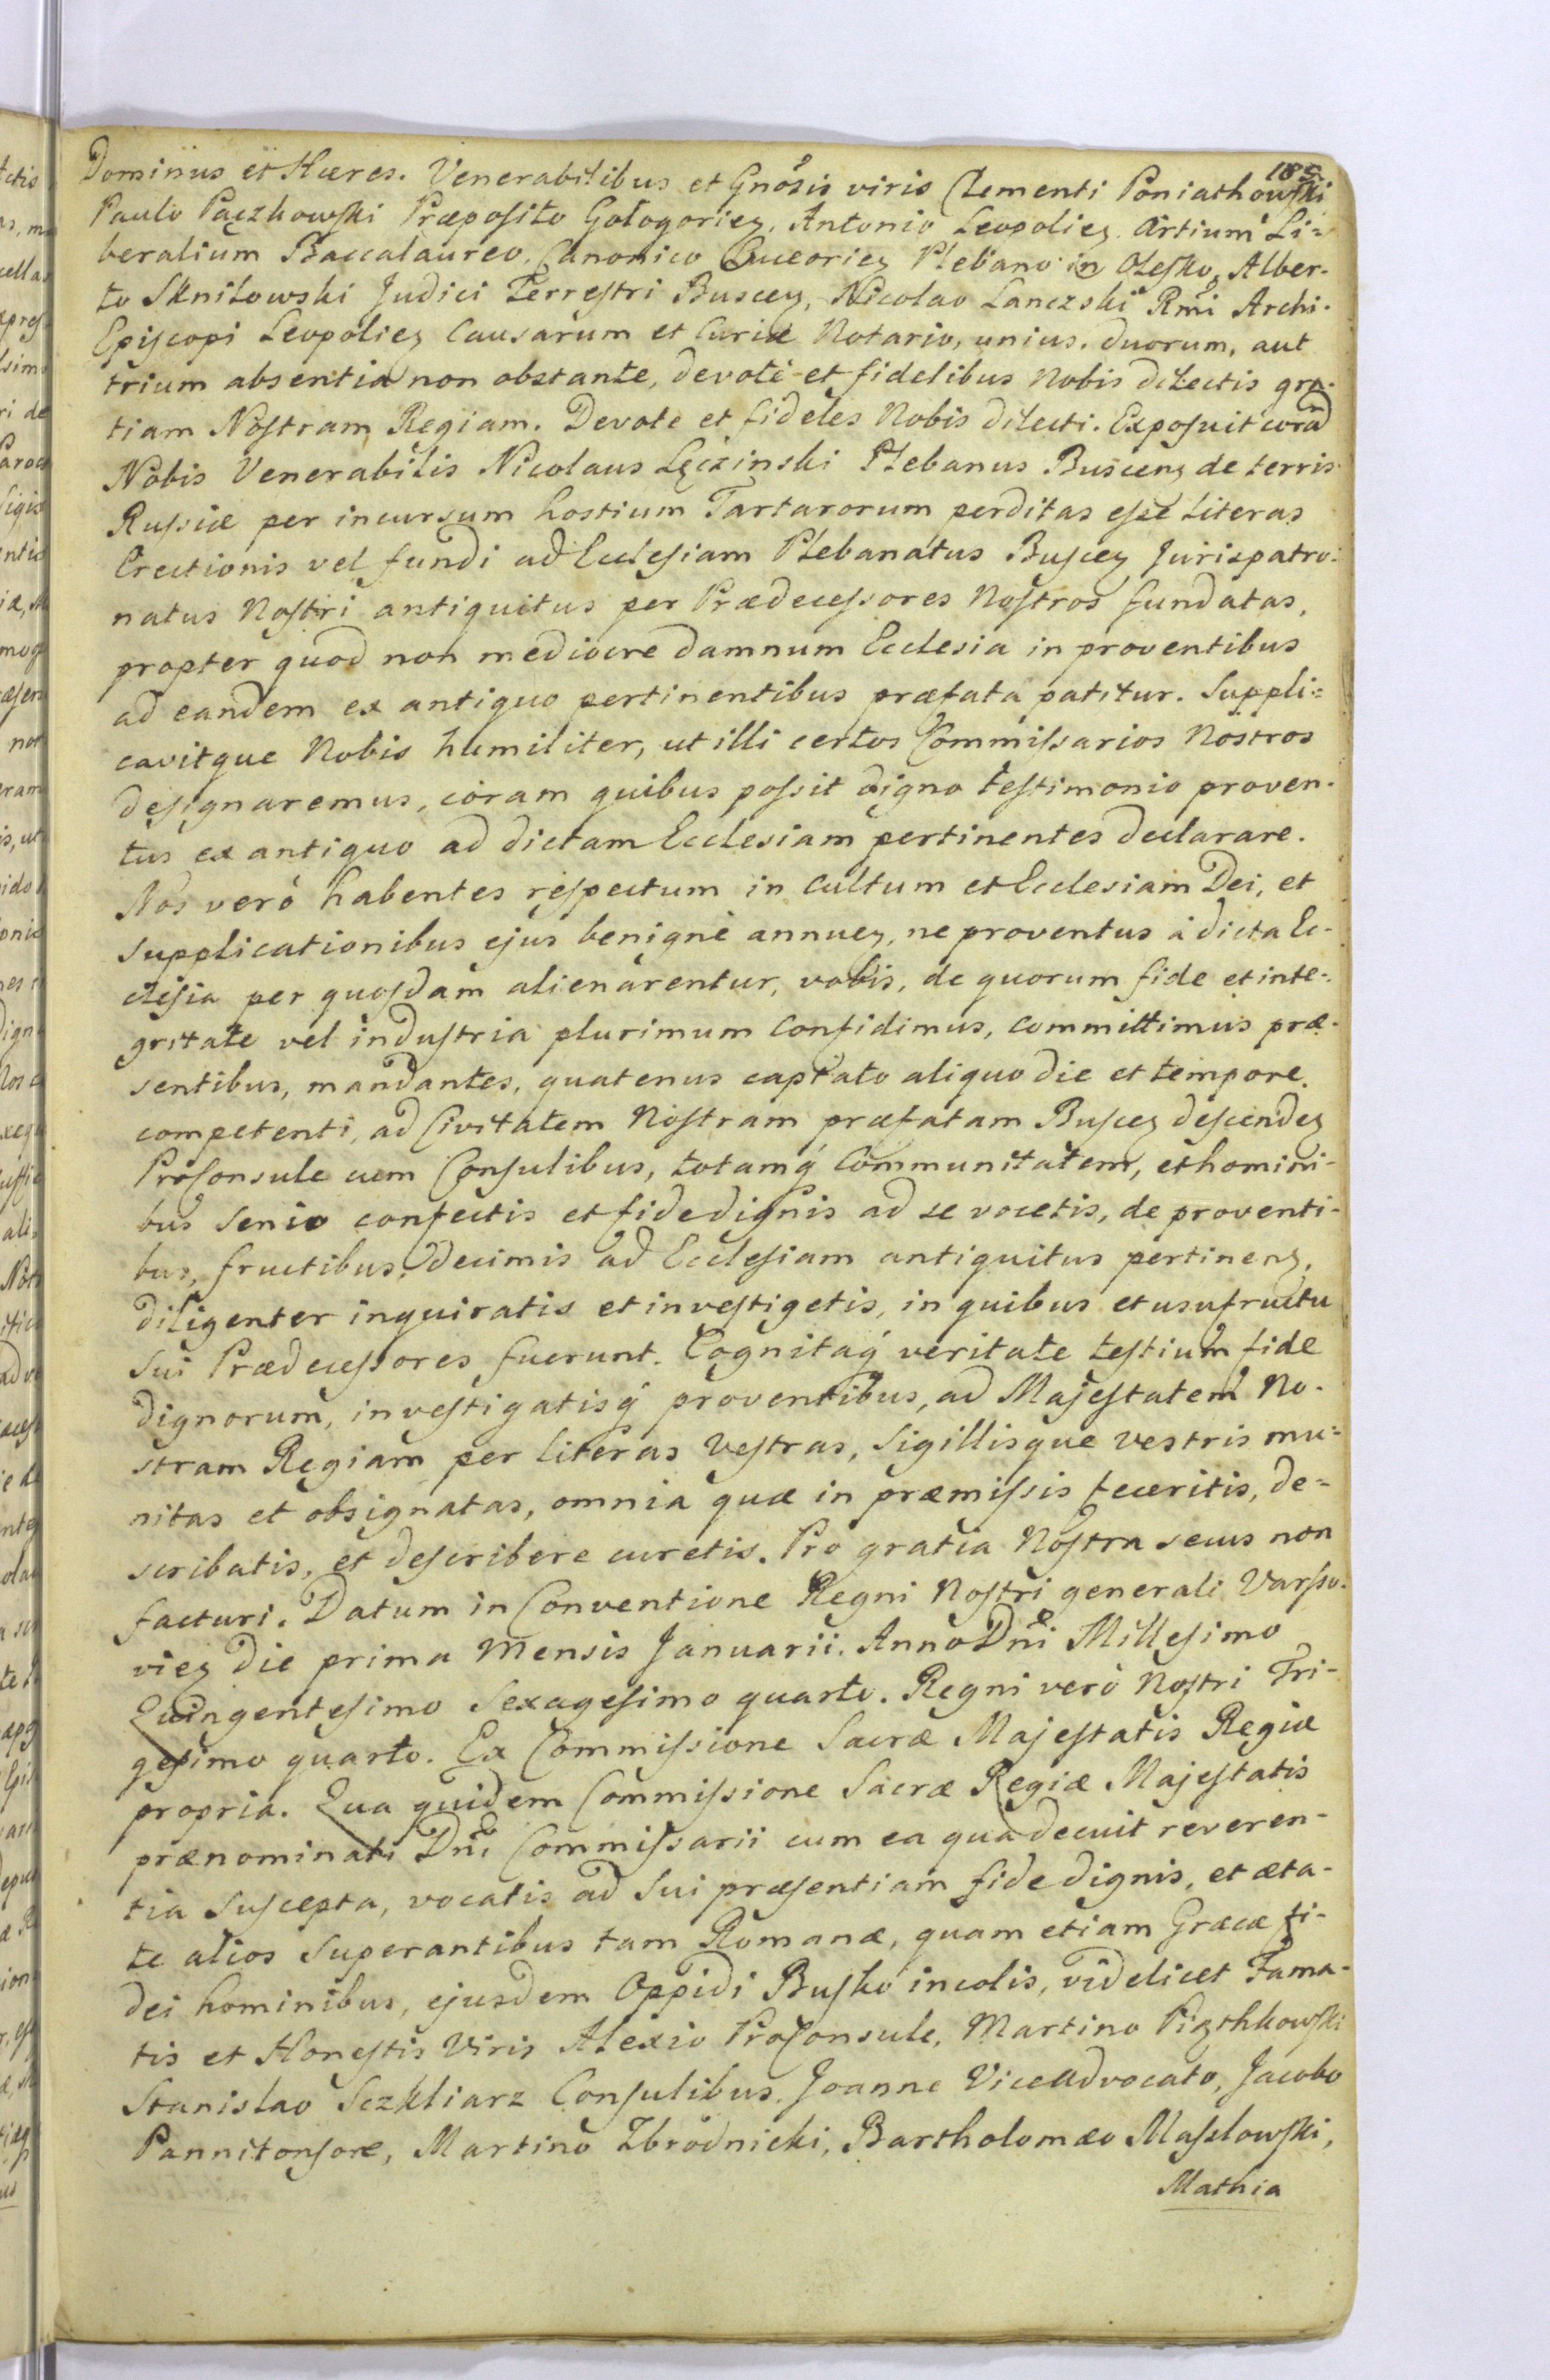 185.
Dominus et Hæres. Venerabilibus et Gnosis viris Clementi Poniathowski
Paulo Paczkowski Præposito Gologoriey, Antonio Leopoliey Artium Li=
beralium Baccalaureo, Canonico Luceoriey Plebano in Olesko, Alber-
to Sknilowski Judici Terrestri Buscey, Nicolao Lanczski Rmi Archi-
Episcopi Leopoliey Causarum et Curiæ Notario, unius, duorum, aut
trium absentia non obstante, devote et fidelibus Nobis dilectis gra-
tiam Nostram Regiam. Devote et fideles Nobis dilecti. Exposuit corā
Nobis Venerabilis Nicolaus Lęczinski Plebanus Busceny de terris
Russiæ per incursum hostium Tartarorum perditas esse literas
Erectionis vel fundi ad Ecclesiam Plebanatus Buscey Jurispatro-
natus Nostri antiquitus per Prædecessores Nostros fundatas,
propter quod non mediocre damnum Ecclesia in proventibus
ad eandem ex antiquo pertinentibus præfata patitur. Suppli=
cavitque Nobis humiliter, ut illi certos Commissarios Nostros
designaremus, coram quibus possit digno testimonio proven-
tus ex antiquo ad dictam Ecclesiam pertinentes declarare.
Nos verò habentes respectum in cultum et Ecclesiam Dei, et
supplicationibus ejus benignè annuey, ne proventus à dicta Ec-
clesia per quosdam alienarentur, vobis, de quorum fide et inte-
gritate vel industria plurimum confidimus, committimus præ-
sentibus, mandantes, quatenus captato aliquo die et tempore
competenti, ad Civitatem Nostram præfatam Buscey descendey
Proconsule cum Consulibus, totamq́ Communitatem, et homini-
bus senio confectis et fidedignis ad se vocetis, de proventi-
bus, fructibus, decimis ad Ecclesiam antiquitus pertineny,
diligenter inquiratis et investigetis, in quibus et usufructu
sui Prædecessores fuerunt. Cognitaq́ veritate testium fide
dignorum, investigatisq́ proventibus, ad Majestatem No-
stram Regiam per literas Vestras, Sigillisque vestris mu=
nitas et obsignatas, omnia quæ in præmissis feceritis, de=
scribatis, et describere curetis. Pro gratia Nostra secus non
facturi. Datum in Conventione Regni Nostri generali Varso-
viey die prima Mensis Januarii. Anno Dni Millesimo
Quingentesimo Sexagesimo quarto. Regni verò Nostri Tri-
gesimo quarto. Ex Commissione Sacræ Majestatis Regiæ
propria. Qua quidem Commissione Sacræ Regiæ Majestatis
prænominati Dni Commissarii cum ea qua decuit reveren-
tia suscepta, vocatis ad sui præsentiam fide dignis, et æta-
te alios superantibus tam Romanæ, quam etiam Græcæ fi-
dei hominibus, ejusdem Oppidi Busko incolis, videlicet Fama-
tis et Honestis Viris Alexio Proconsule, Martino Piythkowski
Stanislao Sczkliarz Consulibus, Joanne Viceadvocato, Jacobo
Pannitonsore, Martino Zbrodnicki, Bartholomæo Maslowski,
Mathia